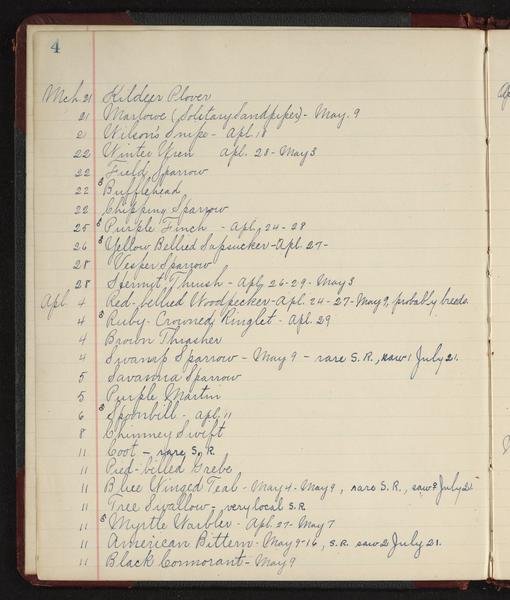 4
Mch. 21 Kildeer Plover
21 Marlowe (Solitary Sandpiper) - May. 9
21 Wilson's Snipe - Apl. 18
22 Winter Wren Apl. 28 - May 3
22 Field Sparrow
22 s Bufflehead
22 Chipping Sparrow
25 s Purple Finch - Apl. 24 - 28
26 s Yellow Bellied Sapsucker - Apl. 27 -
28 Vesper Sparrow
28 Thrush - Apl. 26 - 29 - May 3
Apl 4 Red-bellied Woodpecker - Apl. 24 - 27 - May 9, probably breeds
4 s Ruby-Crowned Kinglet - Apl. 29
4 Brown Thrasher
4 Swamp Sparrow - May 9 - rare S.R., saw 1 July 21.
5 Savanna Sparrow
5 Purple Martin
6 s Spoonbill - Apl. 11
8 Chimney Swift
11 Coot - rare S. R.
11 Pied-billed Grebe
11 Blue Winged Teal - May 4 - May 9, rare S.R., saw July
11 Tree Swallow - very local S.R.
11 s Myrtle Warbler - Apl. 27 - May 7
11 American Bittern - May 9-16, S.R. saw 2 July 21.
11 Black Cormorant - May 9